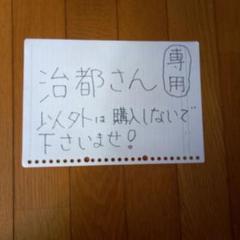 治都さん
専用
以外は購入しないで
下さいませ!